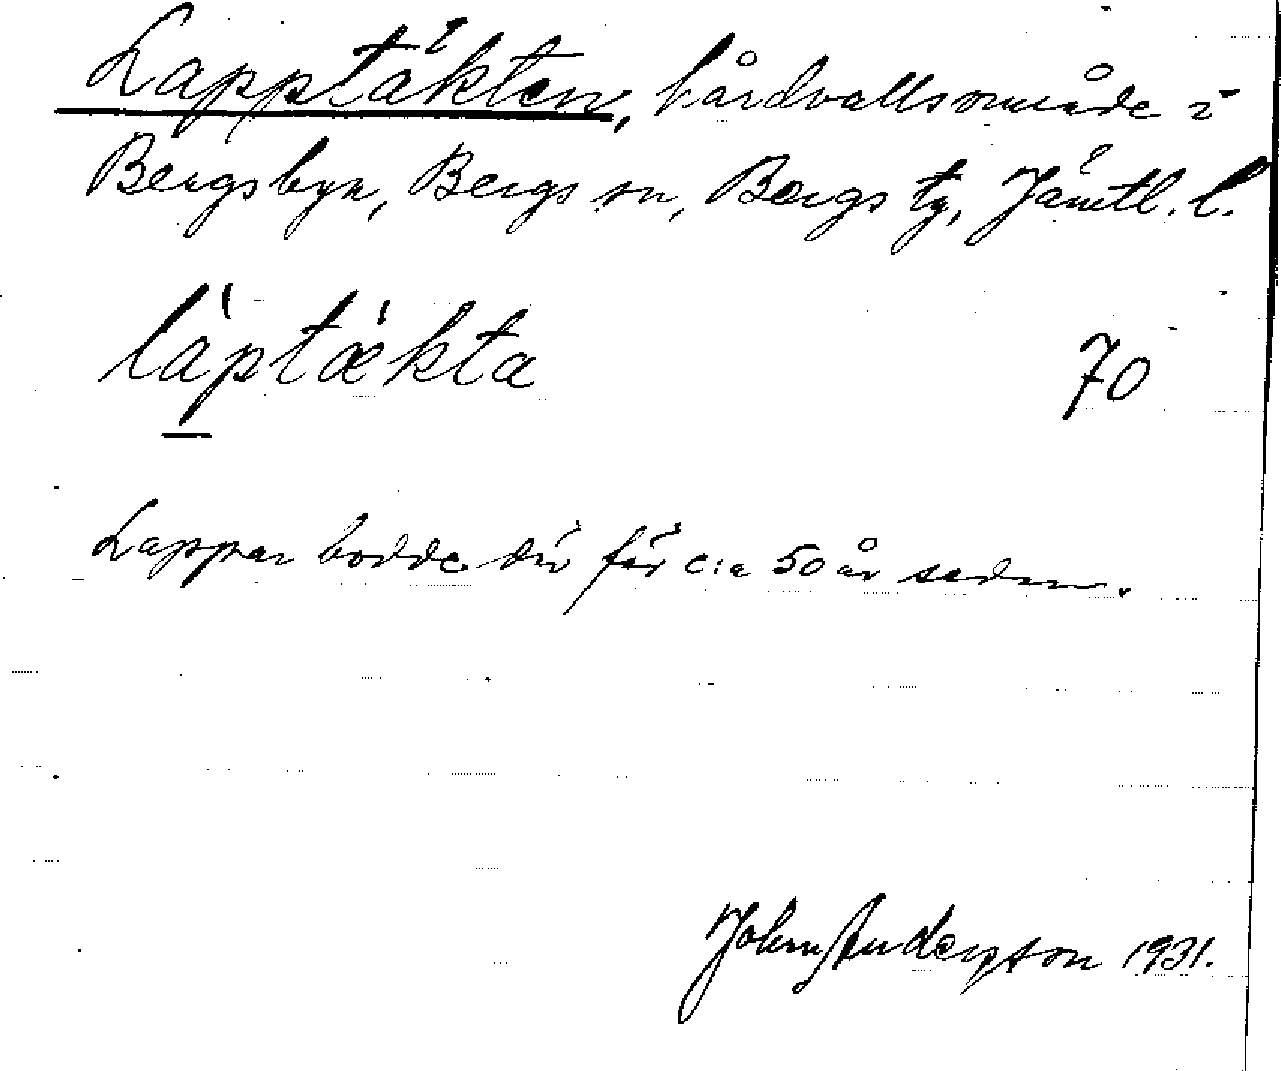 Lapptäkten, hårdvallsområde i
Bergsbyn, Bergs sn, Bergs tg, Jämtl. l.
làptækta 70
Lappar bodde där för c:a 50 år sedan.
John Anderson 1931.